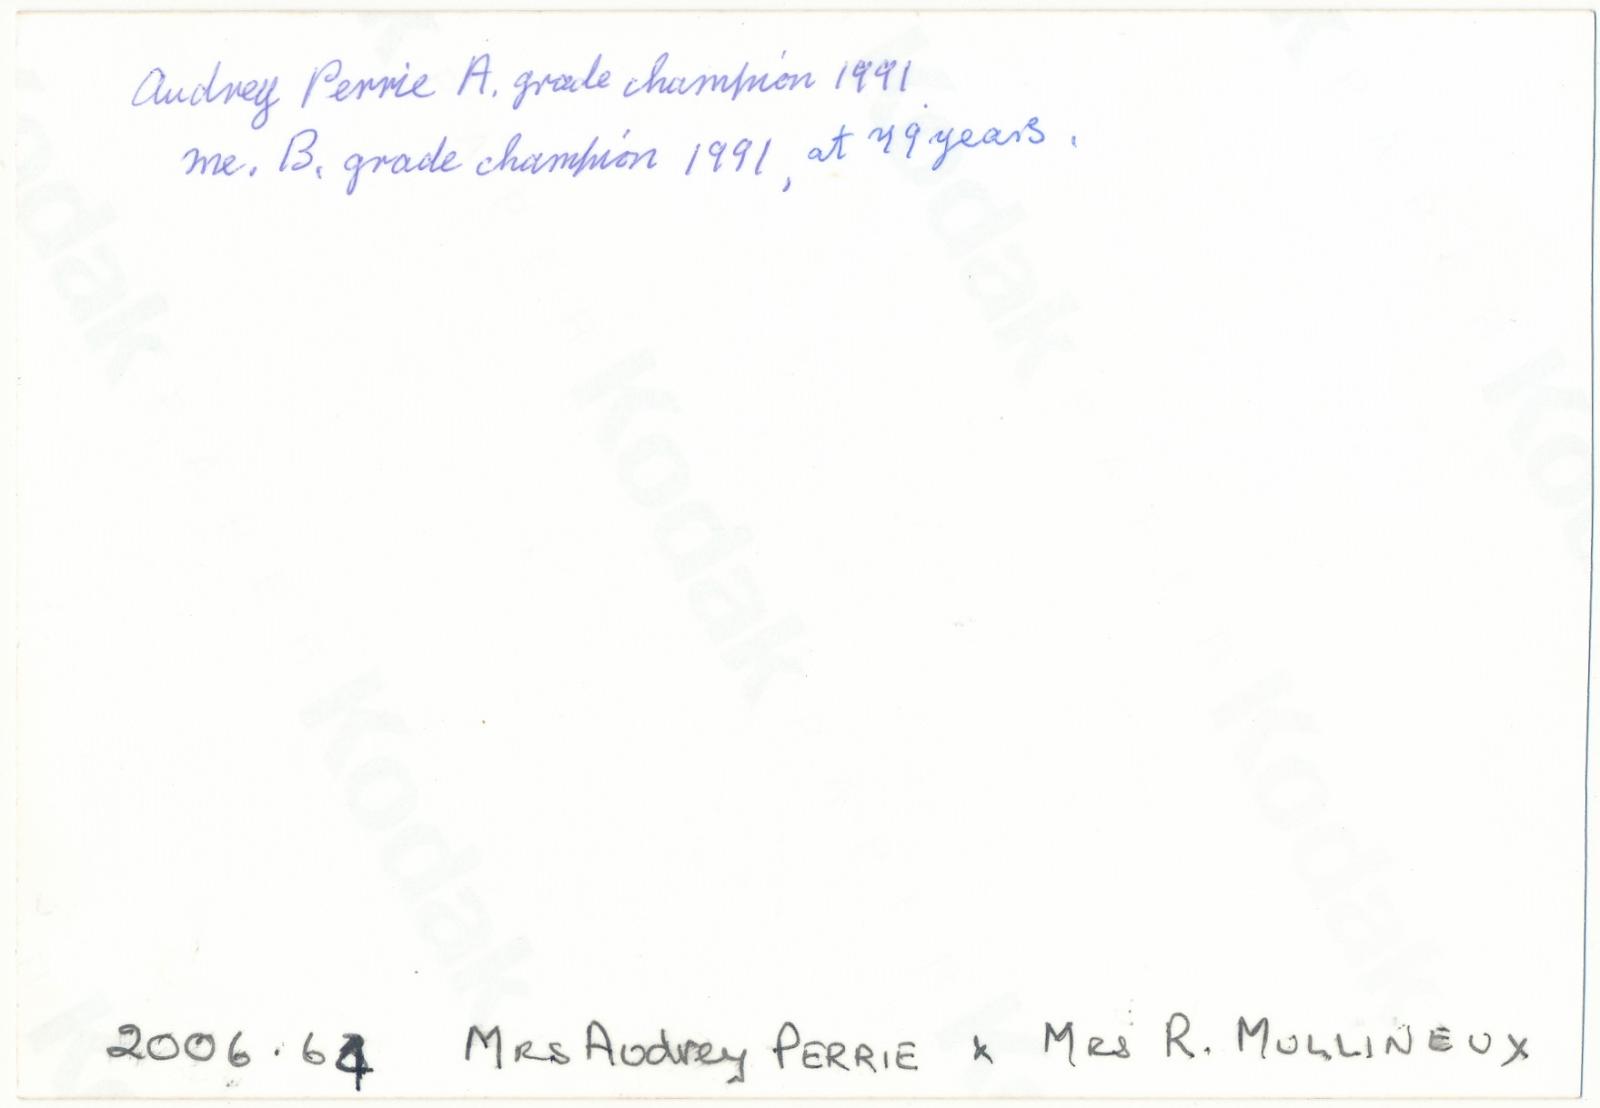 Audrey Perrie A. grade champion 1991
me. B. grade champion 1991, at 79 years.
Kodak
Kodak
Kodak
Kodak
Kodak
2006.64 Mrs Audrey PERRIE x Mrs R. MULLINEUX